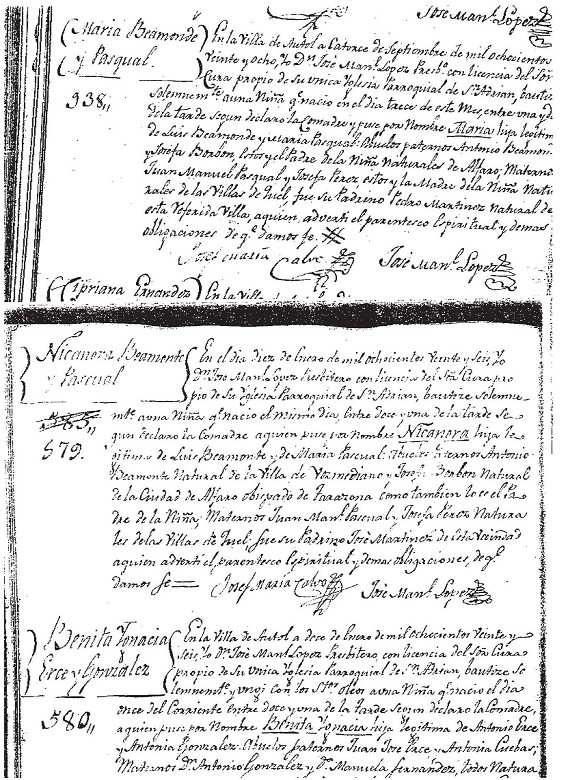 José Man.l Lopez
Maria Beamonde
y Pasqual.
938,,
En la Villa de Autol a Catorce de Septiembre de mil ochocientos
Veinte y ocho, yo Dn José Man.l Lopez Presb.o con licencia del Sor
Cura propio de su unica Yglesia Parroquial de Sn Adrian, bautize
Solemnem.te a una Niña q.e nacio en el dia trece de este Mes, entre una y d
de la tarde segun declaro la Comadre, y puse por Nombre Maria hija legitim
de Luis Beamonde y Maria Pasqual: Abuelos paternos Antonio Beamon
y Josefa Borbon, estos y el Padre de la Niña Naturales de Alfaro; Maternos
Juan Manuel Pasqual y Josefa Perez estos y la Madre de la Niña Natu
rales de las Villas de Quel, fue su Padrino Pedro Martinez Natural de
esta referida Villa, a quien adverti el parentesco Espiritual y demas
obligaciones de q.e damos fe.
José Maria Calvo José Man.l Lopez
Cipriana Ernandez En la Villa
Nicanora Beamonte
y Pascual
585,,
579.
En el dia diez de Enero de mil ochocientos Veinte y seis, Yo
Dn José Man.l Lopez Presbitero con licencia del Sor Cura pro
pio de su Yglesia Parroquial de Sn Adrian, bautize Solemne
m.te a una Niña q.e nacio el mismo dia, entre doce y una de la tarde se
gun declaro la Comadre a quien puse por Nombre Nicanora hija le
gitima de Luis Beamonte y de Maria Pascual: Abuelos Paternos Antonio
Beamonte Natural de la Villa de Vozmediano y Josefa Borbon Natural
de la Ciudad de Alfaro obispado de Tarazona como tambien lo es el Pa
dre de la Niña, Maternos Juan Man.l Pascual, y Josefa Perez Natura
les de las Villas de Quel, fue su Padrino José Martinez de esta Vecindad
a quien adverti el parentesco Espiritual y demas obligaciones, de q.e
damos fe José Maria Calvo José Man.l Lopez
Benita Ygnacia
Erce y Gonzalez
580,,
En la Villa de Autol a doce de Enero de mil ochocientos Veinte y
seis, yo Dn José Man.l Lopez Presbitero con licencia del Sor Cura
propio de su Unica Yglesia Parroquial de Sn Adrian, bautize So
lemnem.te y unji con los Stos oleos a una Niña q.e nacio el dia
once del Corriente entre doce y una de la tarde segun declaro la Comadre,
a quien puse por Nombre Benita Ygnacia hija legitima de Antonio Erce
y Antonia Gonzalez: Abuelos paternos Juan José Erce y Antonia Cuebas,
Maternos Dn Antonio Gonzalez y Da Manuela Fernandez, todos Natura